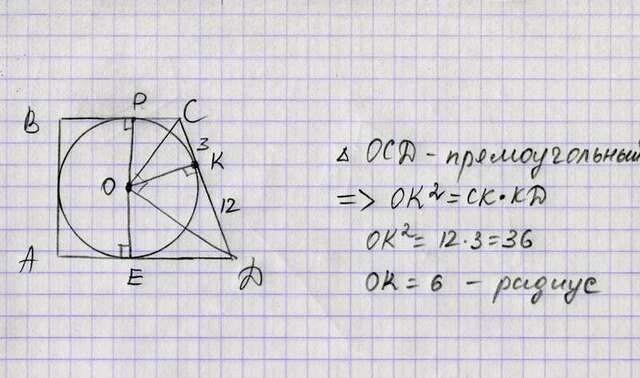 P
B C
3
K
O
12
A E D
△ OCD - прямоугольный
=> OK² = CK · KD
OK² = 12 · 3 = 36
OK = 6 - радиус